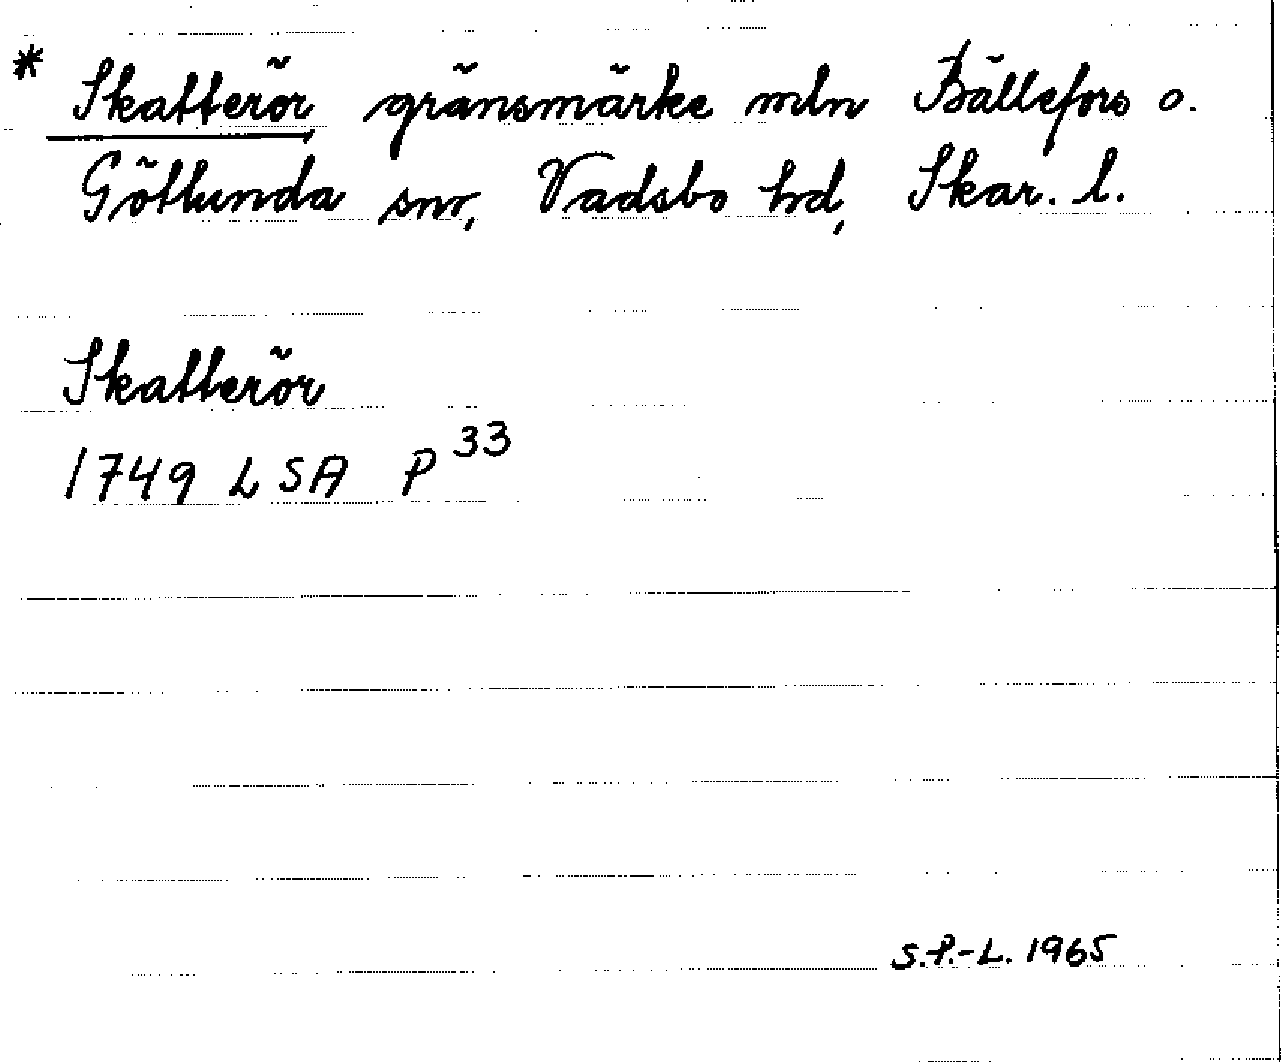 * Skatterör gränsmärke mln Bällefors o.
Götlunda snr, Vadsbo hd, Skar. l.
Skatterör
1749 LSA P 33
S.P.-L. 1965